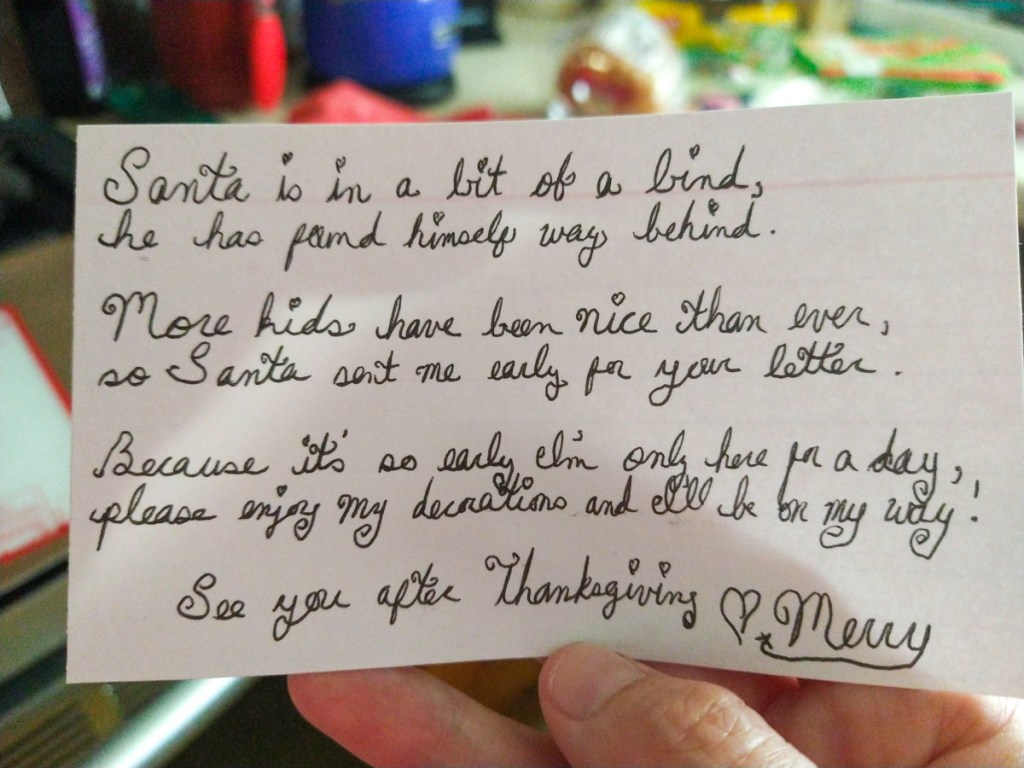 Santa is in a bit of a bind,
he has found himself way behind.
More kids have been nice than ever,
so Santa sent me early for your letter.
Because it's so early, I'm only here for a day,
please enjoy my decorations and I'll be on my way!
See you after Thanksgiving ♡ Merry